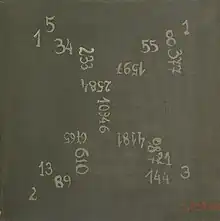 5
1
1
34
55
8
233
377
1597
2584
10946
4181
610
21
13
89
144
3
2